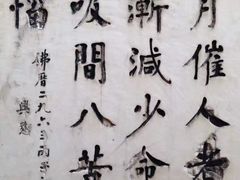 月催人老
漸減少命
吸間八苦
惱
佛曆二九六三丙子
興慈